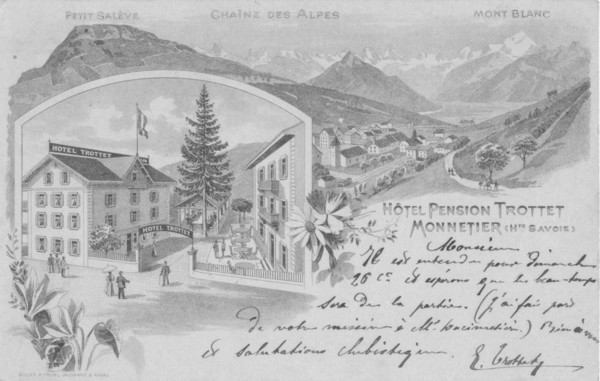 PETIT SALÈVE
CHAÎNE DES ALPES
MONT BLANC
HOTEL TROTTET
HOTEL TROTTET
HÔTEL PENSION TROTTET
MONNETIER (HTE SAVOIE)
Monsieur
Il est entendu pour dimanche
26 ct et espérons que le beau temps
sera de la partie. (J'ai fait part
de votre mission à Mr
et salutations
E. Trottet